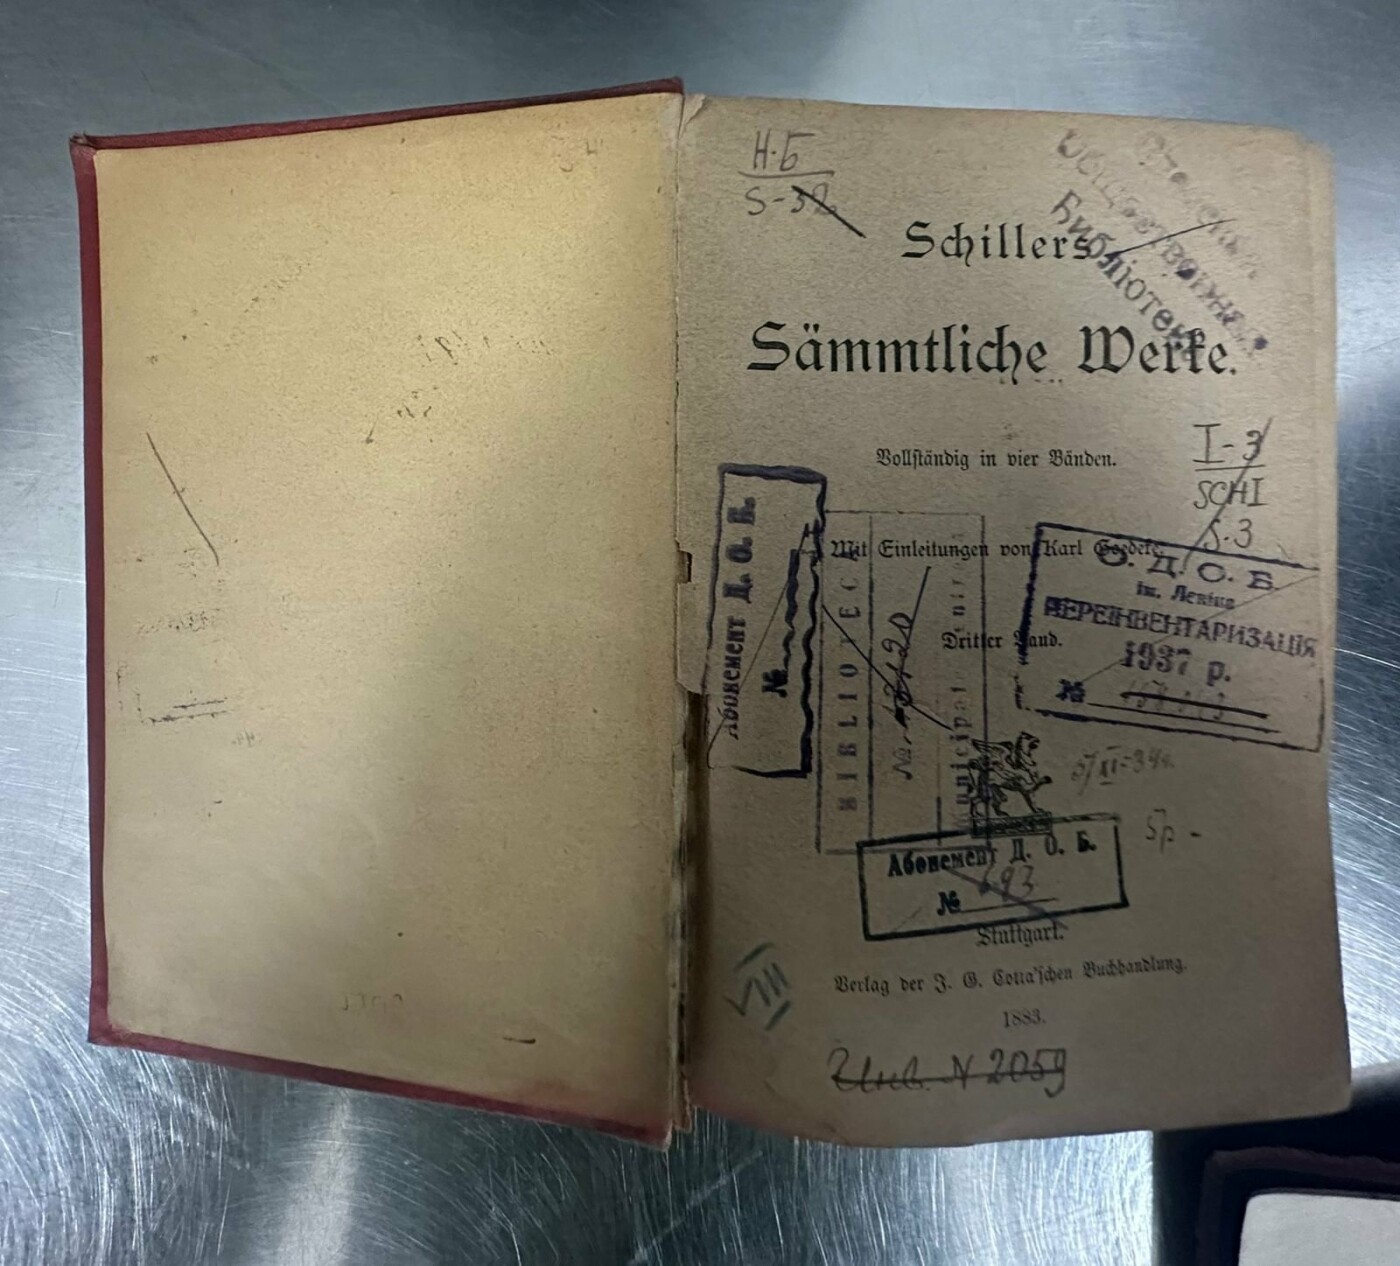 Н·Б
S-32
Schillers
Sämmtliche Werke.
Бібліотека
Vollständig in vier Bänden.
I-3
SCHI
S.3
Mit Einleitungen von Karl Goedeke.
Dritter Band.
Абонемент Д. О. Б.
№
BIBLIOTECA
№
О. Д. О. Б.
ім. Леніна
ПЕРЕІНВЕНТАРИЗАЦІЯ
1937 р.
№
5р-
Абонемент Д. О. Б.
№ 693
Stuttgart.
Verlag der J. G. Cotta'schen Buchhandlung.
1883.
VIII
Инв. N 2059